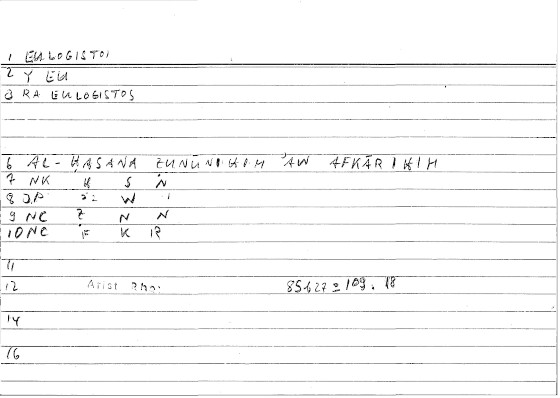 1 EULOGISTOI
2 Y EU
3 RA EULOGISTOS
6 AL-ḤASANA ẒUNŪNIHIM ʾAW AFKĀRIHIM
7 NK Ḥ S N
8 W
9 NC Ẓ N N
10 NC F K R
11
12 Arist Rhet 85b27 = 109.18
14
16